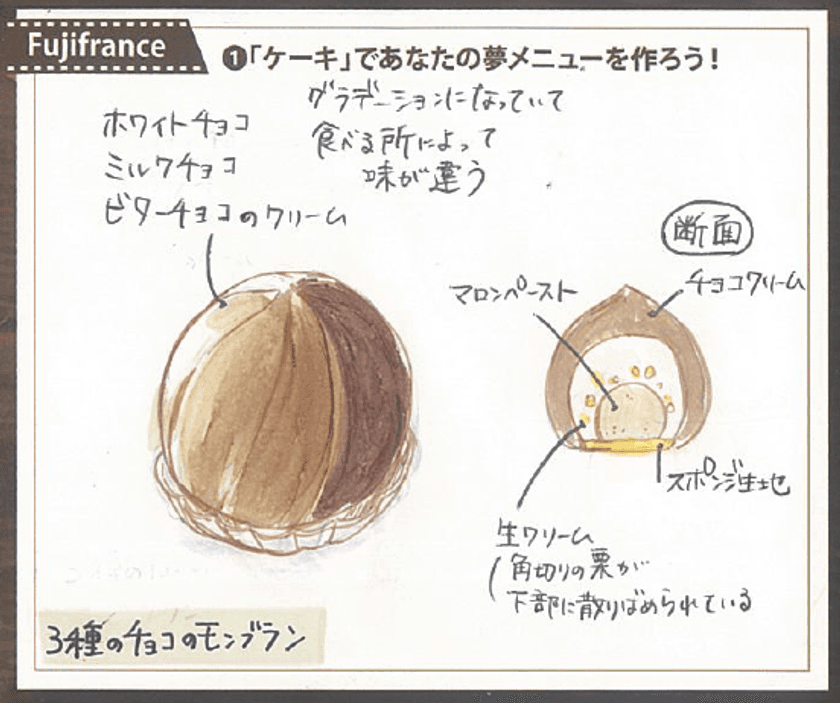 Fujifrance
❶「ケーキ」であなたの夢メニューを作ろう！
グラデーションになっていて
食べる所によって
味が違う
ホワイトチョコ
ミルクチョコ
ビターチョコのクリーム
断面
マロンペースト
チョコクリーム
スポンジ生地
生クリーム
（角切りの栗が
下部に散りばめられている
3種のチョコのモンブラン